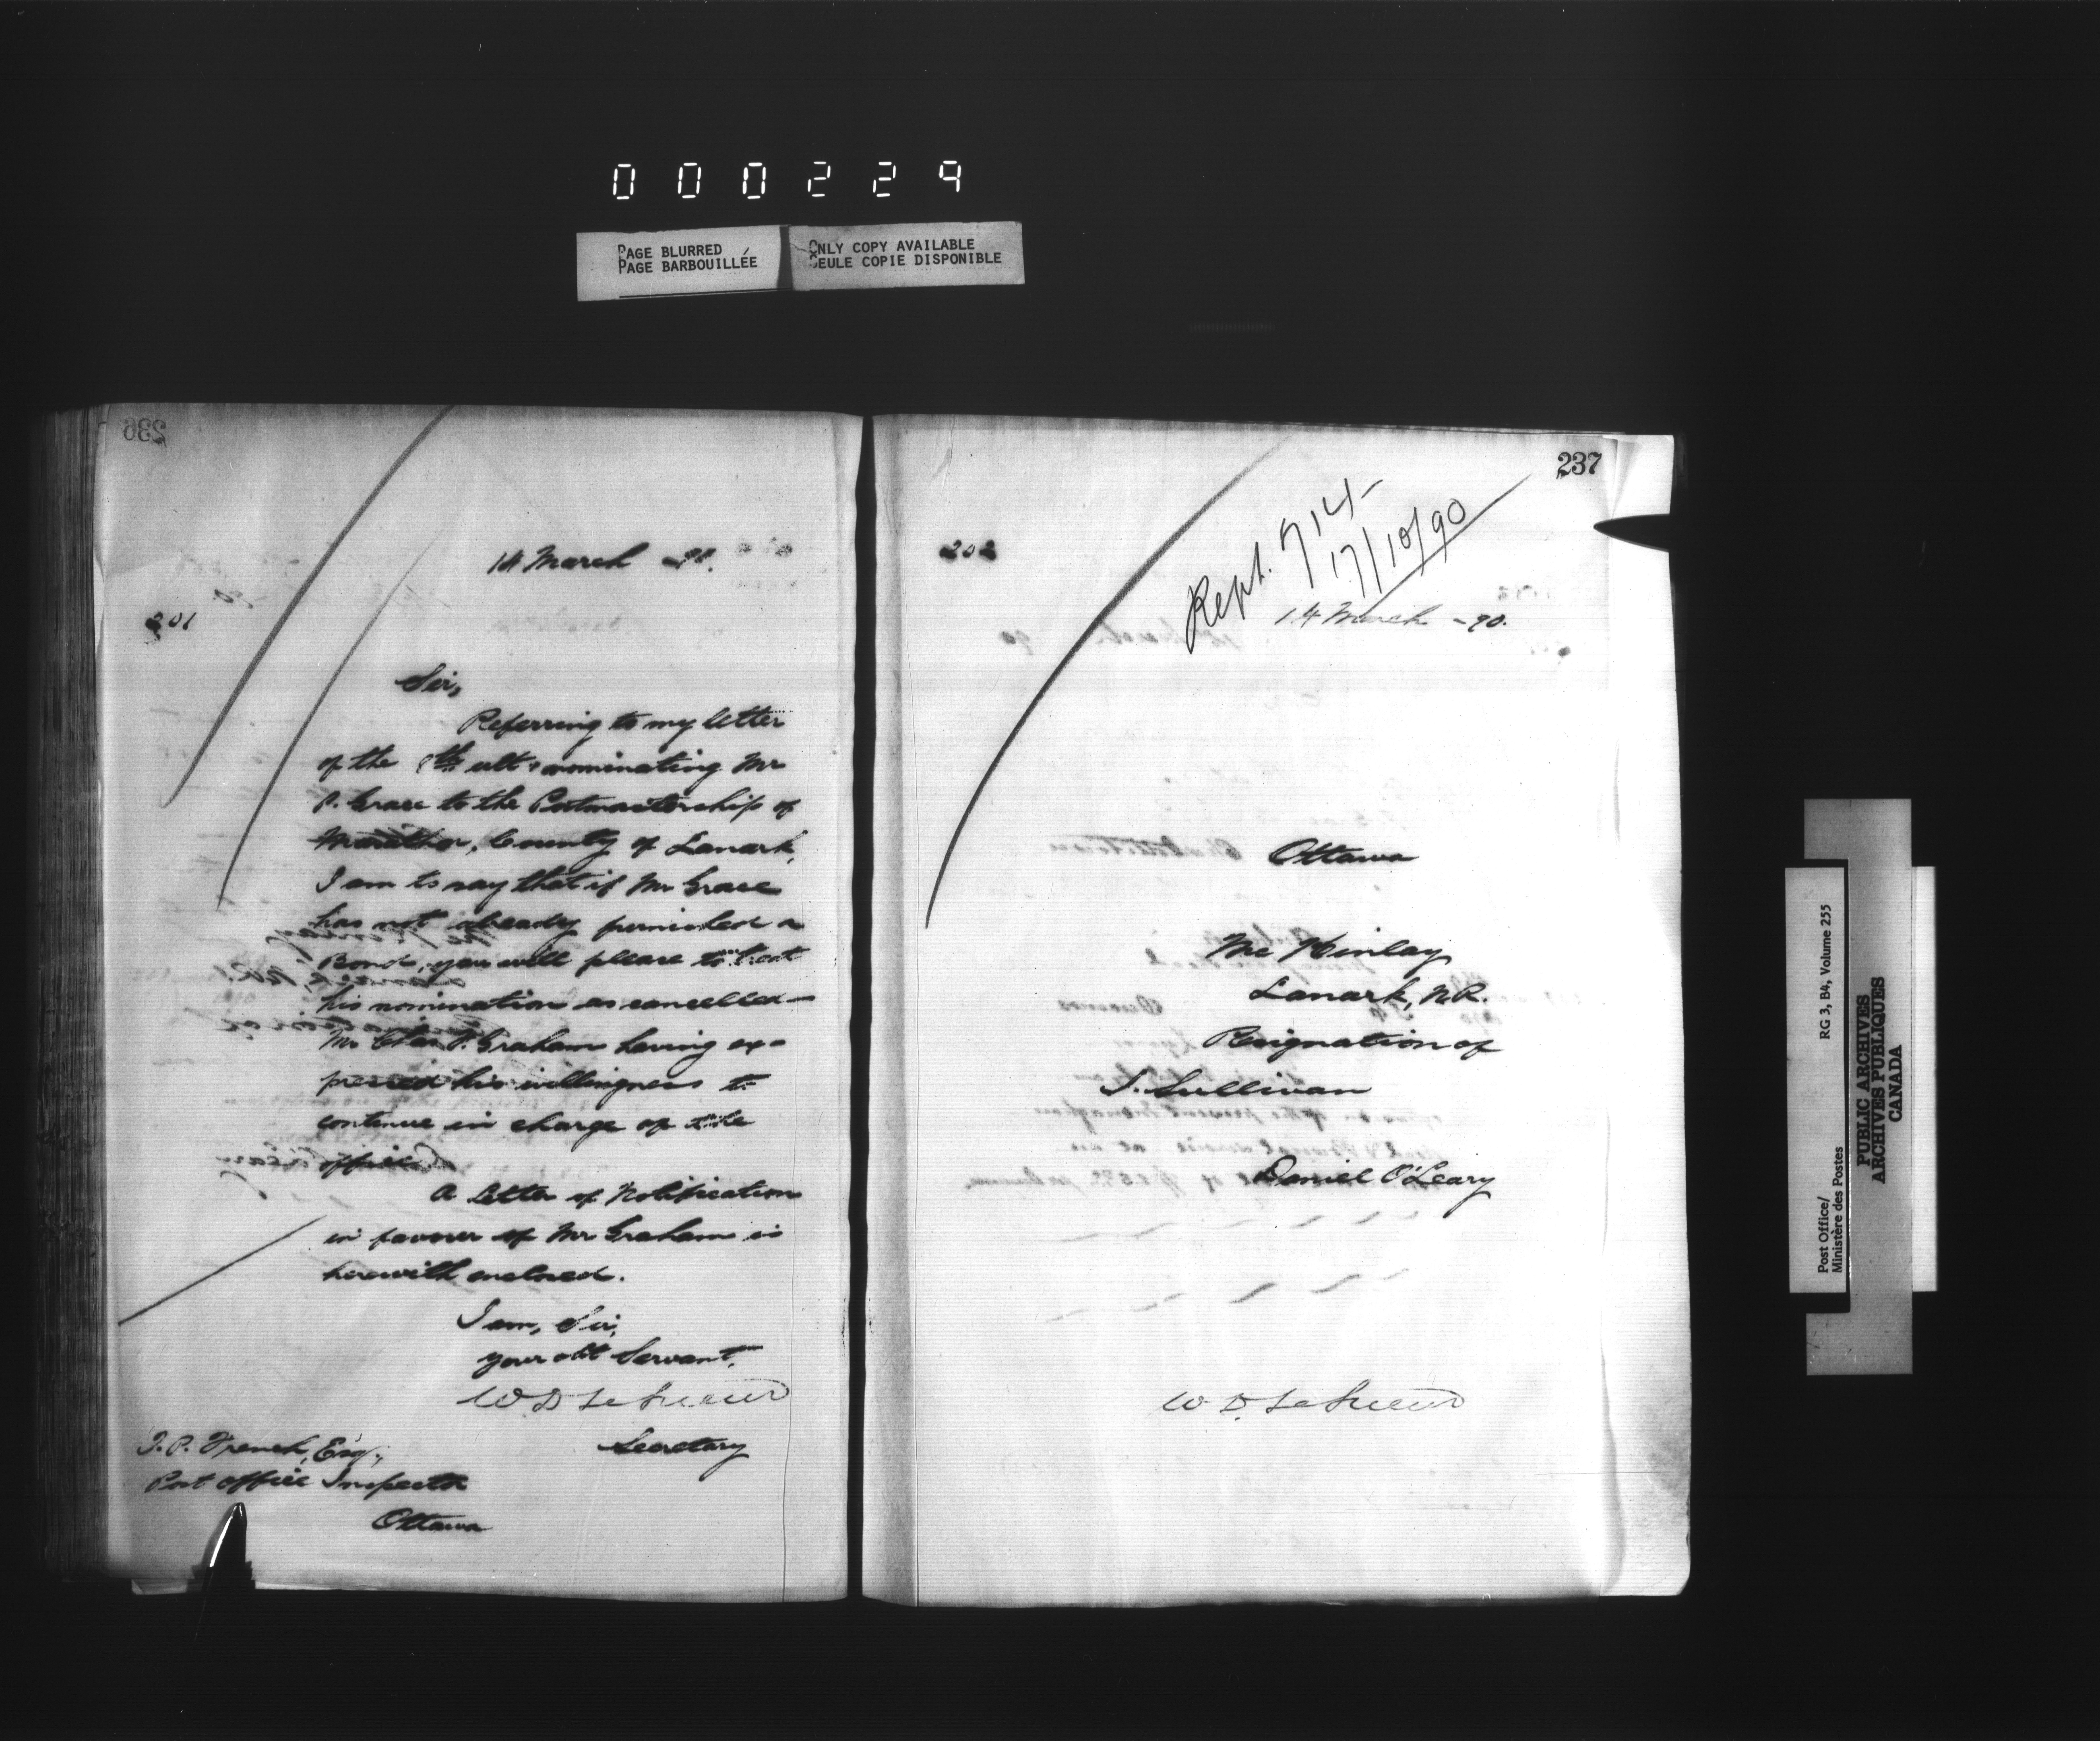 000229
PAGE BLURRED
PAGE BARBOUILLÉE
ONLY COPY AVAILABLE
SEULE COPIE DISPONIBLE
236
14 March -90.
201
Sir,
Referring to my letter
of the 8th ult: nominating Mr
P. Grace to the Postmastership of
County of Lanark,
I am to say that if Mr Grace
has not already furnished a
Bond, you will please to treat
his nomination as cancelled—
Mr Chas P. Graham having ex-
pressed his willingness to
continue in charge of the
office.
A Letter of Notification
in favour of Mr Graham is
herewith enclosed.
I am, Sir,
your obt Servant,
W. D. LeSueur
Secretary
T. P. French, Esq.,
Post Office Inspector
Ottawa
237
Rept. 714-
17/10/90
202
14 March -90.
Ottawa
McKinlay
Lanark, N.R.
Resignation of
Sullivan
Daniel O'Leary
W. D. LeSueur
Post Office/
Ministère des Postes
RG 3, B4, Volume 255
PUBLIC ARCHIVES
ARCHIVES PUBLIQUES
CANADA